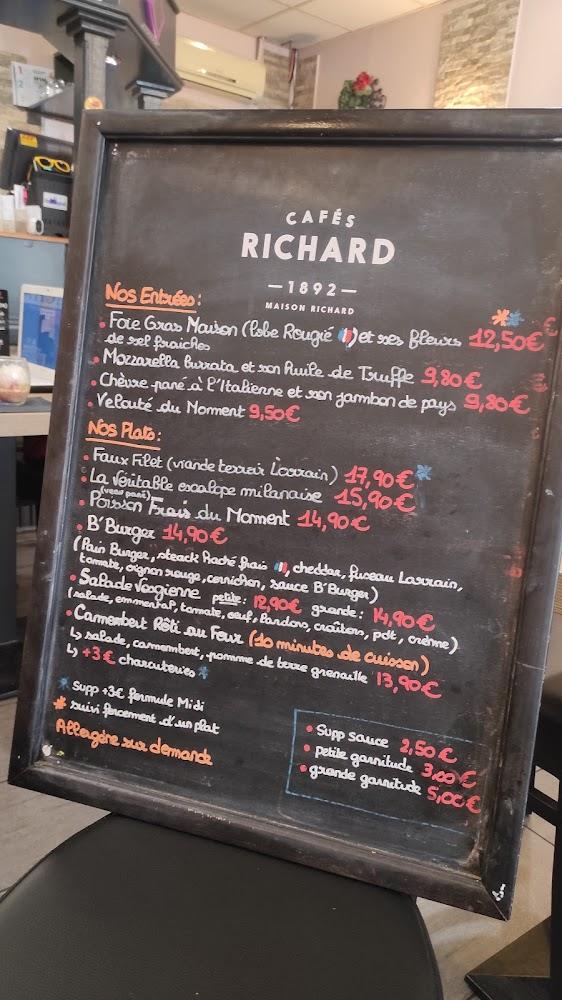 CAFÉS
RICHARD
—1892—
MAISON RICHARD
Nos Entrées:
• Foie Gras Maison (lobe Rougié) et ses fleurs 12,50€
de sel fraiches
• Mozzarella burrata et son huile de Truffe 9,80€
• Chèvre pané à l'Italienne et son jambon de pays 9,80€
• Velouté du Moment 9,50€
Nos Plats:
• Faux Filet (viande terroir Lorrain) 17,90€*
• La Véritable escalope milanaise 15,90€
(veau pané)
• Poisson Frais du Moment 14,90€
• B'Burger 14,90€
(Pain Burger, steack haché frais, cheddar, fuseau Lorrain,
tomate, oignon rouge, cornichon, sauce B'Burger)
• Salade Vosgienne petite: 12,90€ grande: 14,90€
(salade, emmental, tomate, oeuf, lardons, croûtons, pdt, crème)
• Camembert Rôti au Four (10 minutes de cuisson)
↳ salade, camembert, pomme de terre grenaille 13,90€
↳ +3€ charcuteries*
* Supp +3€ formule Midi
* suivi forcement d'un plat
Allergène sur demande
• Supp sauce 2,50€
• petite garnitude 3,00€
• grande garnitude 5,00€